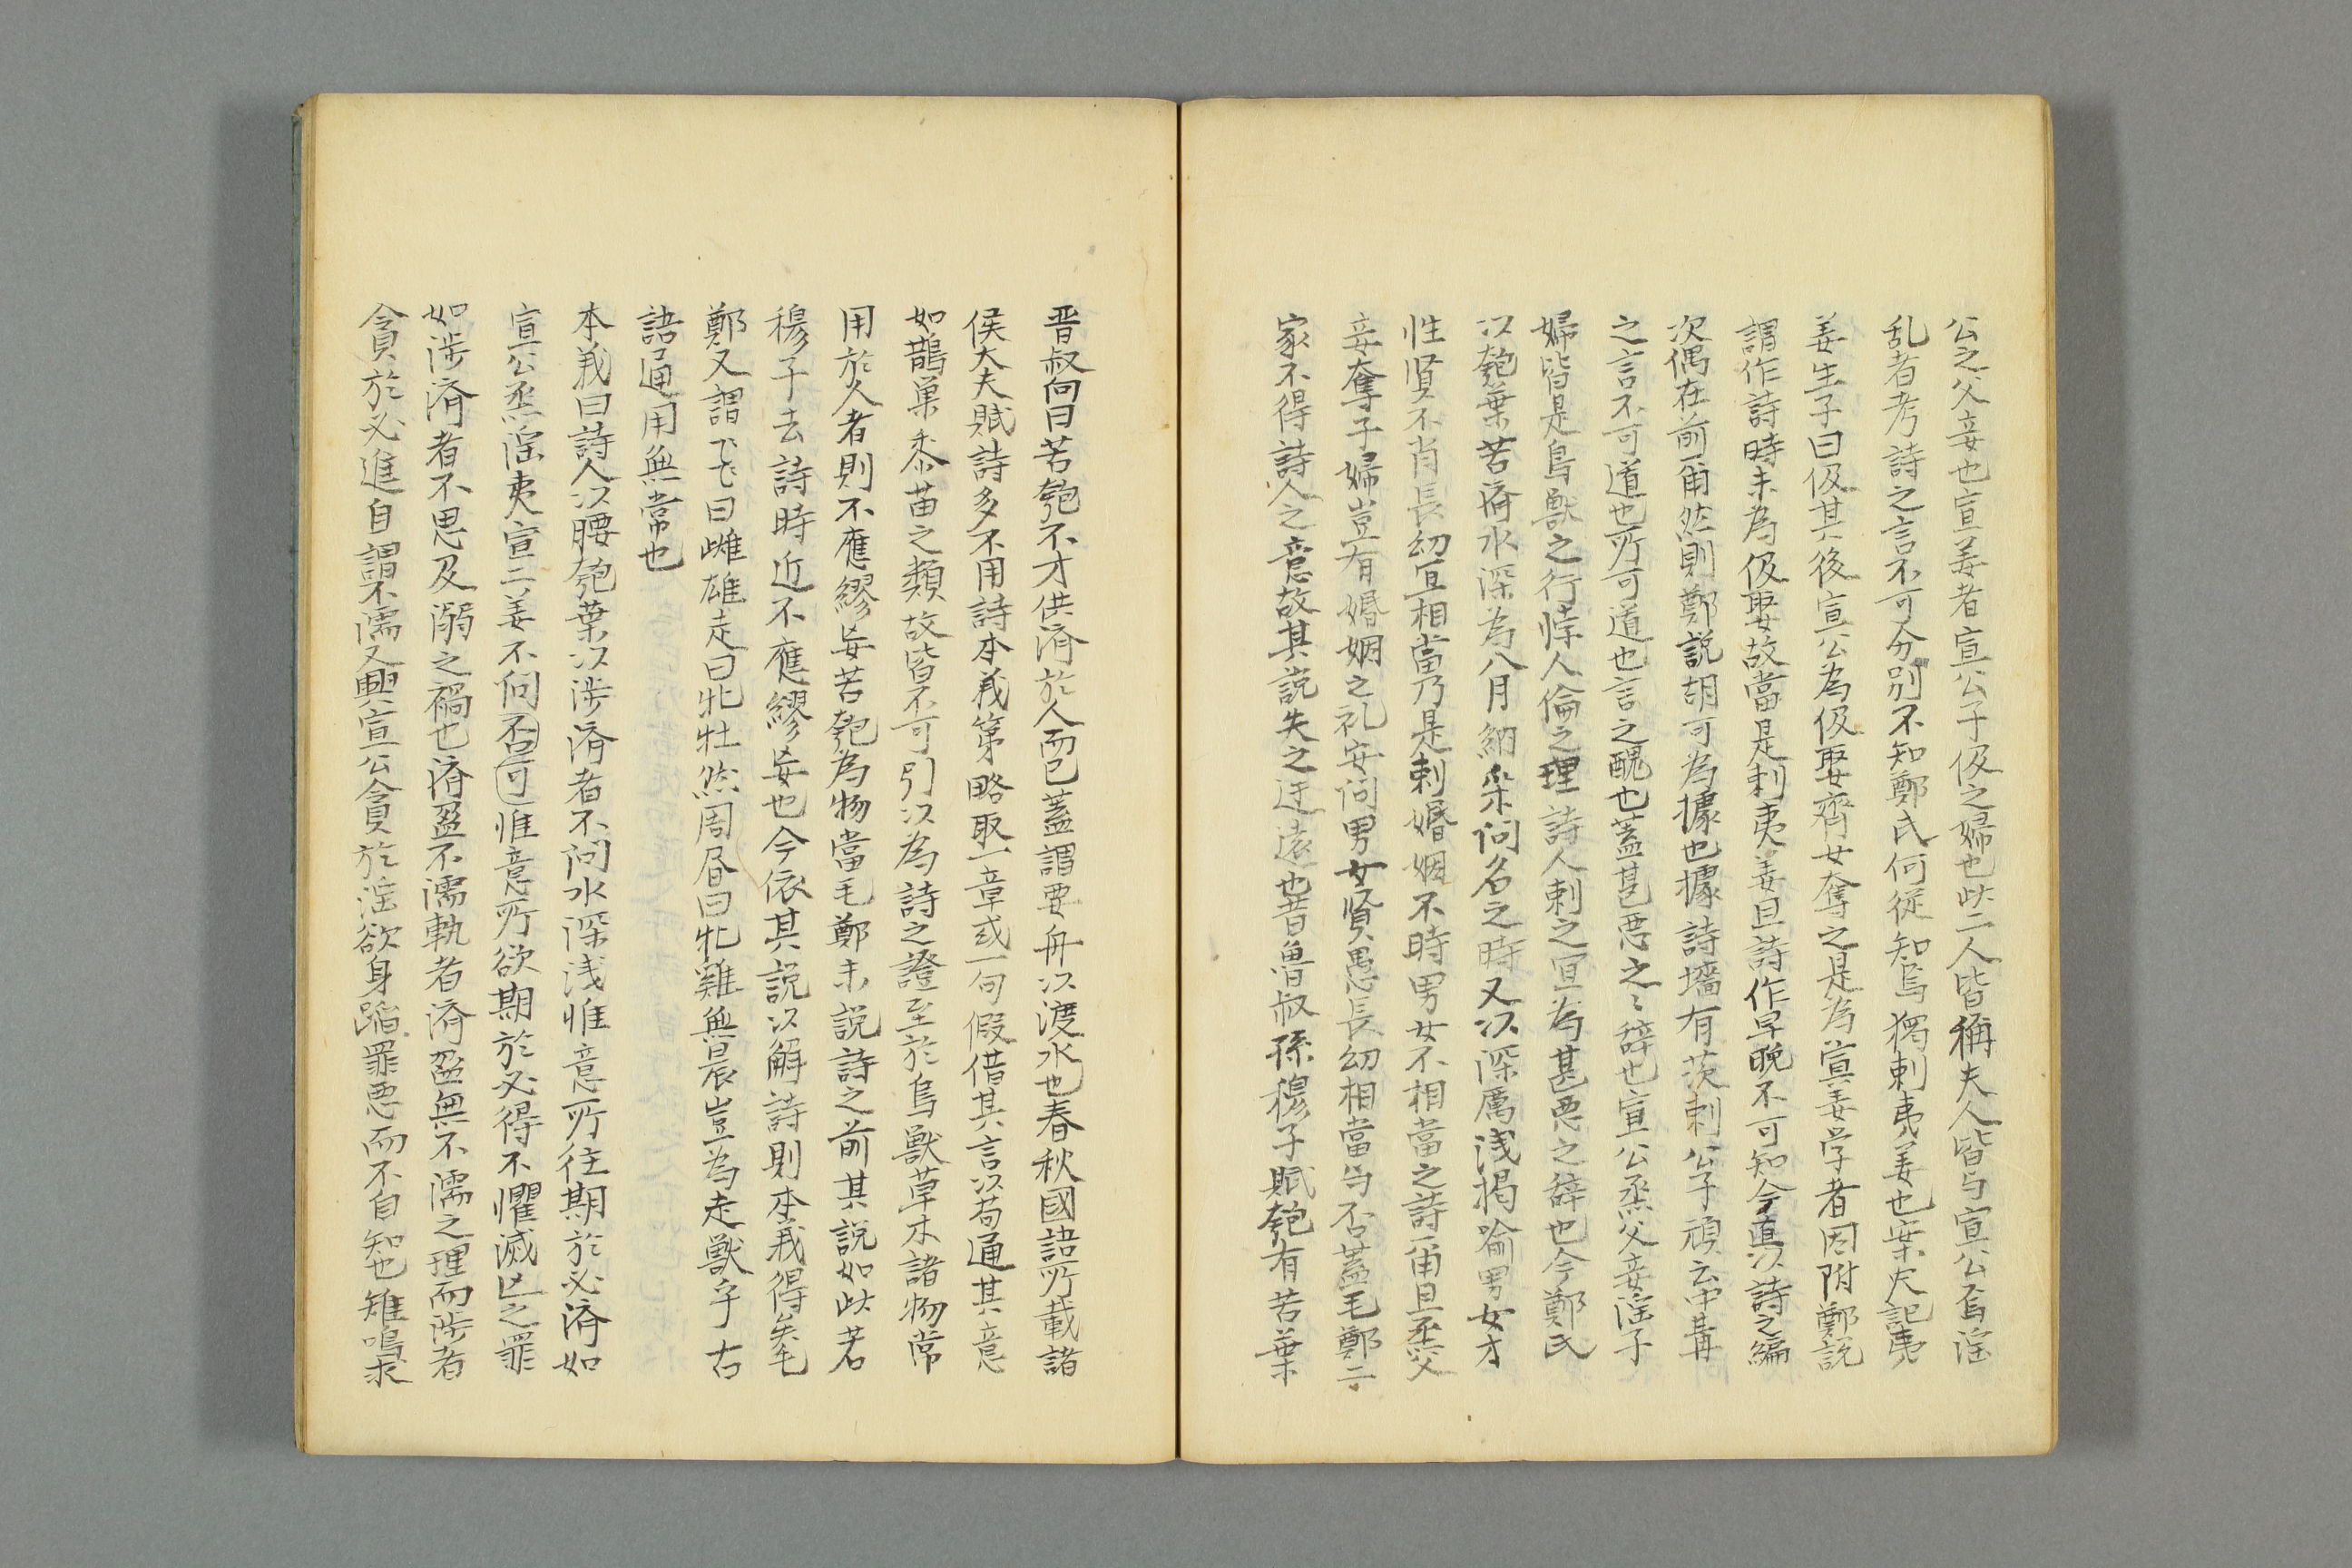 公之父妾也宣姜者宣公子伋之婦也此二人皆稱夫人皆与宣公為淫
乱者考詩之言不可分別不知鄭氏何從知為獨刺夷姜也案史記夷
姜生子曰伋其後宣公為伋娶齊女奪之是為宣姜学者因附鄭説
謂作詩時未為伋娶故當是刺夷姜且詩作早晚不可知今直以詩之編
次偶在前爾然則鄭説胡可為據也據詩墻有茨刺公子頑云中冓
之言不可道也所可道也言之醜也蓋甚悪之〻辞也宣公烝父妾淫子
婦皆是鳥獣之行悖人倫之理詩人刺之宜為甚悪之辞也今鄭氏
以匏葉苦済水深為八月納采問名之時又以深厲浅掲喻男女才
性賢不肖長幼宜相當乃是刺婚姻不時男女不相當之詩爾且烝父
妾奪子婦豈有婚姻之礼安問男女賢愚長幼相當与不蓋毛鄭二
家不得詩人之意故其説失之迂遠也昔魯叔孫穆子賦匏有苦葉
晋叔向曰苦匏不才供済於人而已蓋謂要舟以渡水也春秋國語所載諸
侯大夫賦詩多不用詩本義第略取一章或一句假借其言以苟通其意
如鵲巣黍苗之類故皆不可引以為詩之證至於鳥獣草木諸物常
用於人者則不應繆妄苦匏為物當毛鄭未説詩之前其説如此若
穆子去詩時近不應繆妄也今依其説以解詩則本義得矣毛
鄭又謂飞曰雌雄走曰牝牡然周昏曰牝雞無晨豈為走獣乎古
語通用無常也
本義曰詩人以腰匏葉以渉済者不問水深浅惟意所往期於必済如
宣公烝淫夷宣二姜不问否可惟意所欲期於必得不懼滅亡之罪
如渉済者不思及溺之禍也済盈不濡軌者済盈無不濡之理而渉者
貪於必進自謂不濡又興宣公貪於淫欲身蹈罪悪而不自知也雉鳴求